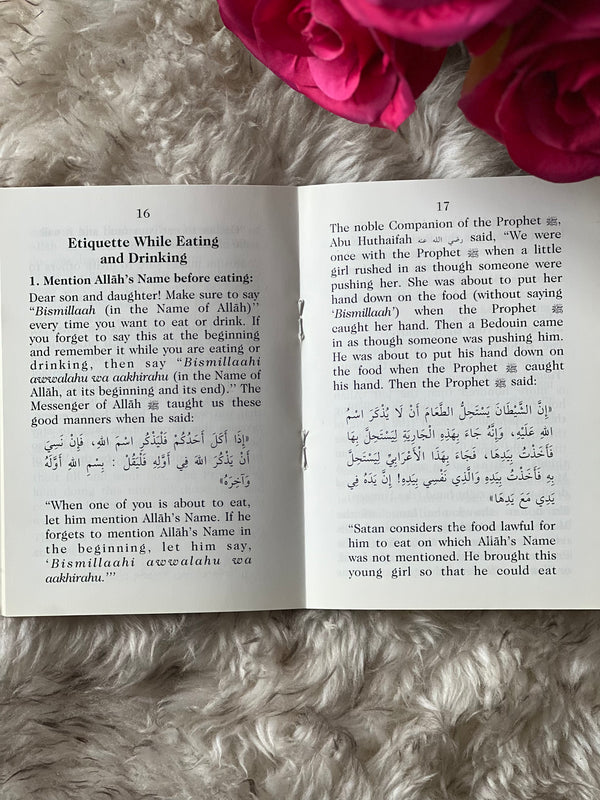 16
Etiquette While Eating
and Drinking
1. Mention Allāh's Name before eating:
Dear son and daughter! Make sure to say
"Bismillaah (in the Name of Allāh)"
every time you want to eat or drink. If
you forget to say this at the beginning
and remember it while you are eating or
drinking, then say "Bismillaahi
awwalahu wa aakhirahu (in the Name of
Allāh, at its beginning and its end)." The
Messenger of Allāh ﷺ taught us these
good manners when he said:
«إِذَا أَكَلَ أَحَدُكُمْ فَلْيَذْكُرِ اسْمَ اللهِ، فَإِنْ نَسِيَ
أَنْ يَذْكُرَ اللهَ فِي أَوَّلِهِ فَلْيَقُلْ : بِسْمِ اللهِ أَوَّلَهُ
وَآخِرَهُ»
"When one of you is about to eat,
let him mention Allāh's Name. If he
forgets to mention Allāh's Name in
the beginning, let him say,
'Bismillaahi awwalahu wa
aakhirahu.'"
17
The noble Companion of the Prophet ﷺ,
Abu Huthaifah رضي الله عنه said, "We were
once with the Prophet ﷺ when a little
girl rushed in as though someone were
pushing her. She was about to put her
hand down on the food (without saying
'Bismillaah') when the Prophet ﷺ
caught her hand. Then a Bedouin came
in as though someone was pushing him.
He was about to put his hand down on
the food when the Prophet ﷺ caught
his hand. Then the Prophet ﷺ said:
«إِنَّ الشَّيْطَانَ يَسْتَحِلُّ الطَّعَامَ أَنْ لَا يُذْكَرَ اسْمُ
اللهِ عَلَيْهِ، وَإِنَّهُ جَاءَ بِهَذِهِ الْجَارِيَةِ لِيَسْتَحِلَّ بِهَا
فَأَخَذْتُ بِيَدِهَا، فَجَاءَ بِهَذَا الْأَعْرَابِيِّ لِيَسْتَحِلَّ
بِهِ فَأَخَذْتُ بِيَدِهِ وَالَّذِي نَفْسِي بِيَدِهِ! إِنَّ يَدَهُ فِي
يَدِي مَعَ يَدِهَا»
"Satan considers the food lawful for
him to eat on which Allāh's Name
was not mentioned. He brought this
young girl so that he could eat